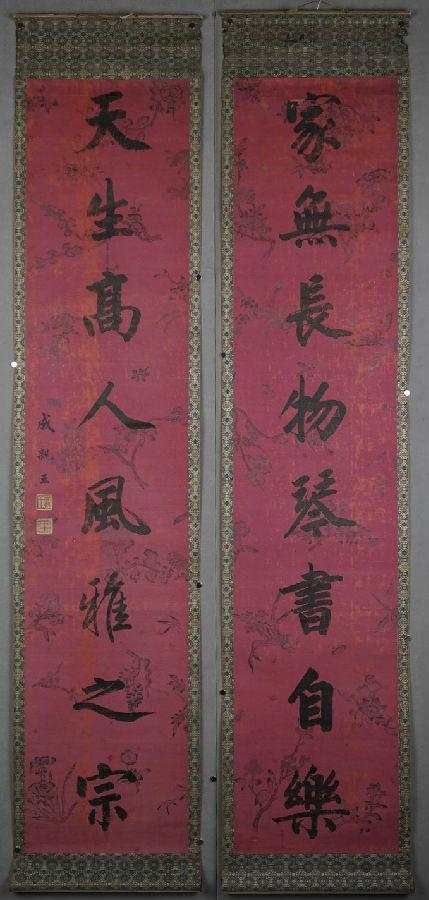 家無長物琴書自樂
天生高人風雅之宗
成親王